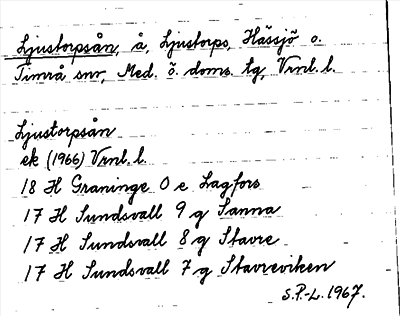 Ljustorpsån, å, Ljustorps, Hässjö o.
Timrå snr, Med. ö. doms. tg, Vrnl. l.
Ljustorpsån
ek (1966) Vrnl. l.
18 H Graninge 0 e Lagfors
17 H Sundsvall 9 g Sanna
17 H Sundsvall 8 g Stavre
17 H Sundsvall 7 g Stavreviken
S.P.-L. 1967.